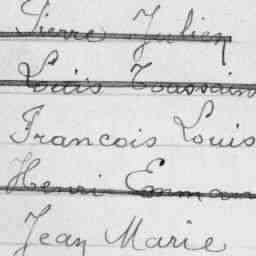 Pierre Julien
Louis Toussain
Francois Louis
Henri Emman
Jean Marie